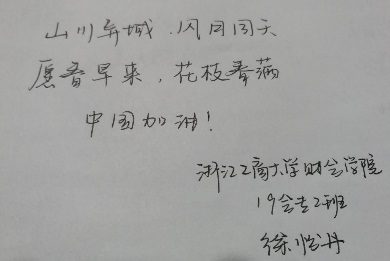 山川异域 风月同天
愿春早来，花枝春满
中国加油！
浙江工商大学财会学院
19会专2班
徐怡丹